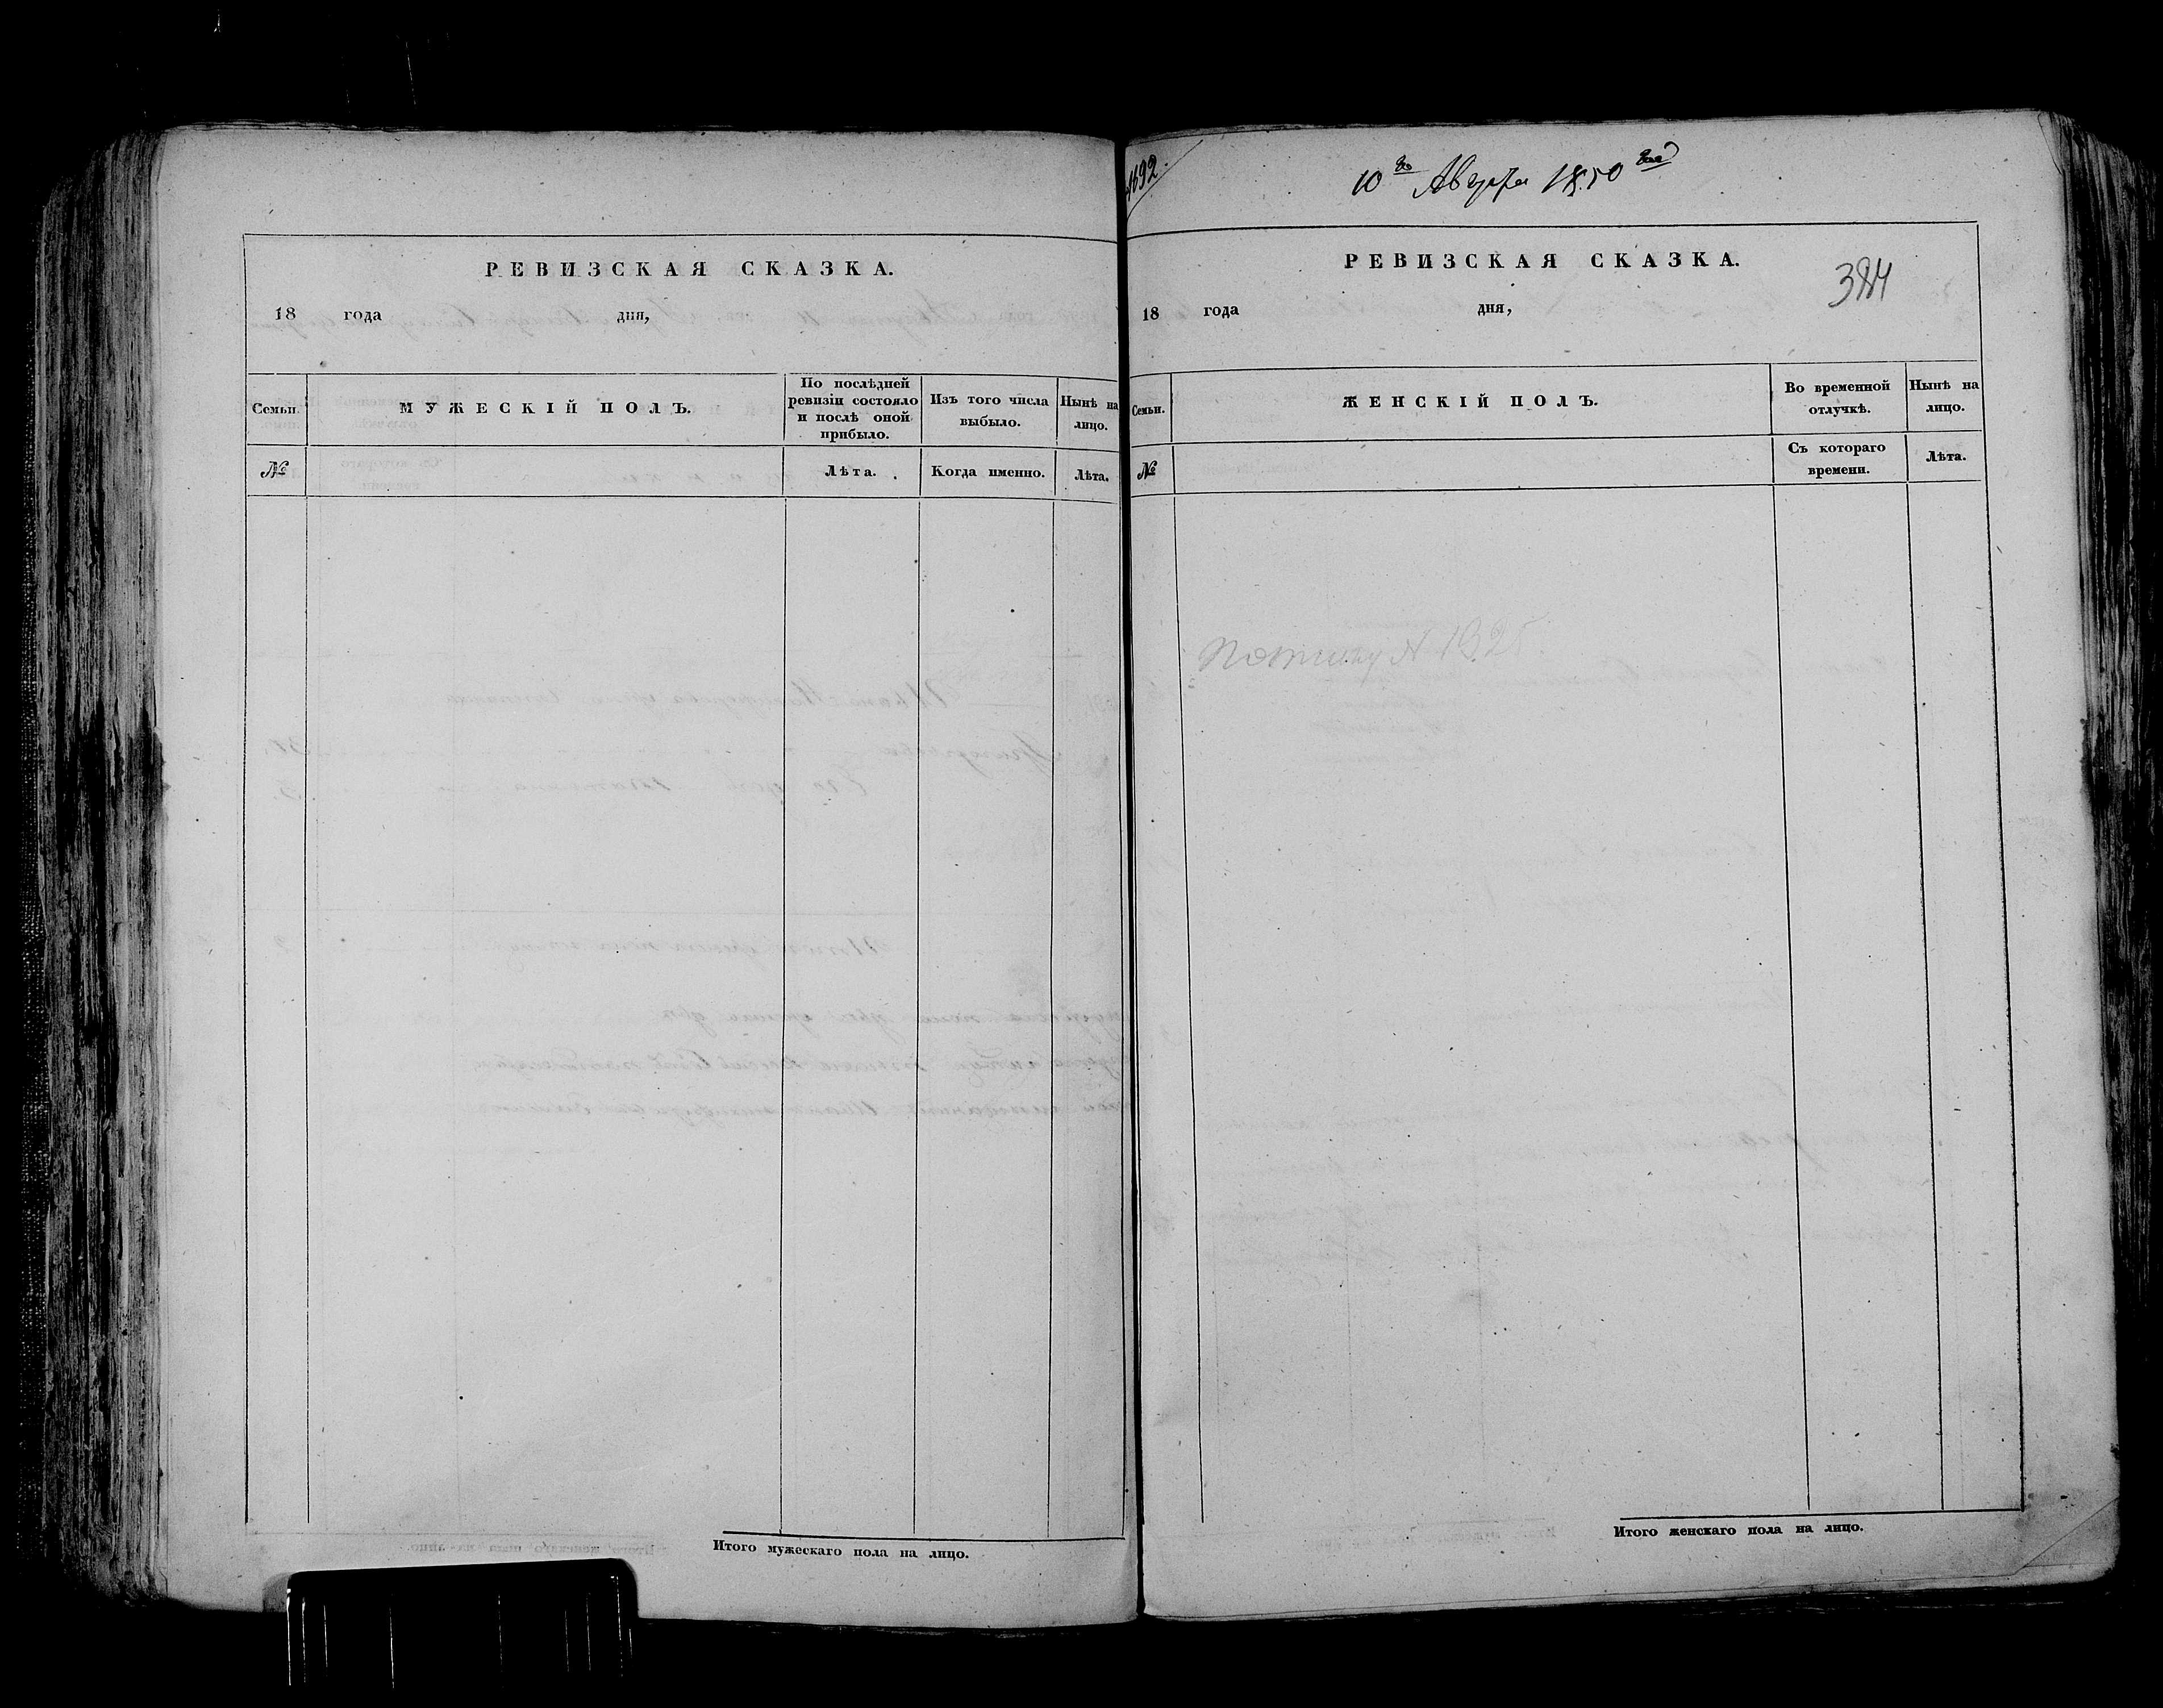 РЕВИЗСКАЯ СКАЗКА.
18 года дня,
Семьи.
МУЖЕСКІЙ ПОЛЪ.
По послѣдней
ревизіи состояло
и послѣ оной
прибыло.
Изъ того числа
выбыло.
Нынѣ на
лицо.
№
Лѣта.
Когда именно.
Лѣта.
Итого мужескаго пола на лицо.
1692.
10го Августа 1850 года
РЕВИЗСКАЯ СКАЗКА.
384
18 года дня,
Семьи.
ЖЕНСКІЙ ПОЛЪ.
Во временной
отлучкѣ.
Нынѣ на
лицо.
№
Съ котораго
времени.
Лѣта.
Итого женскаго пола на лицо.